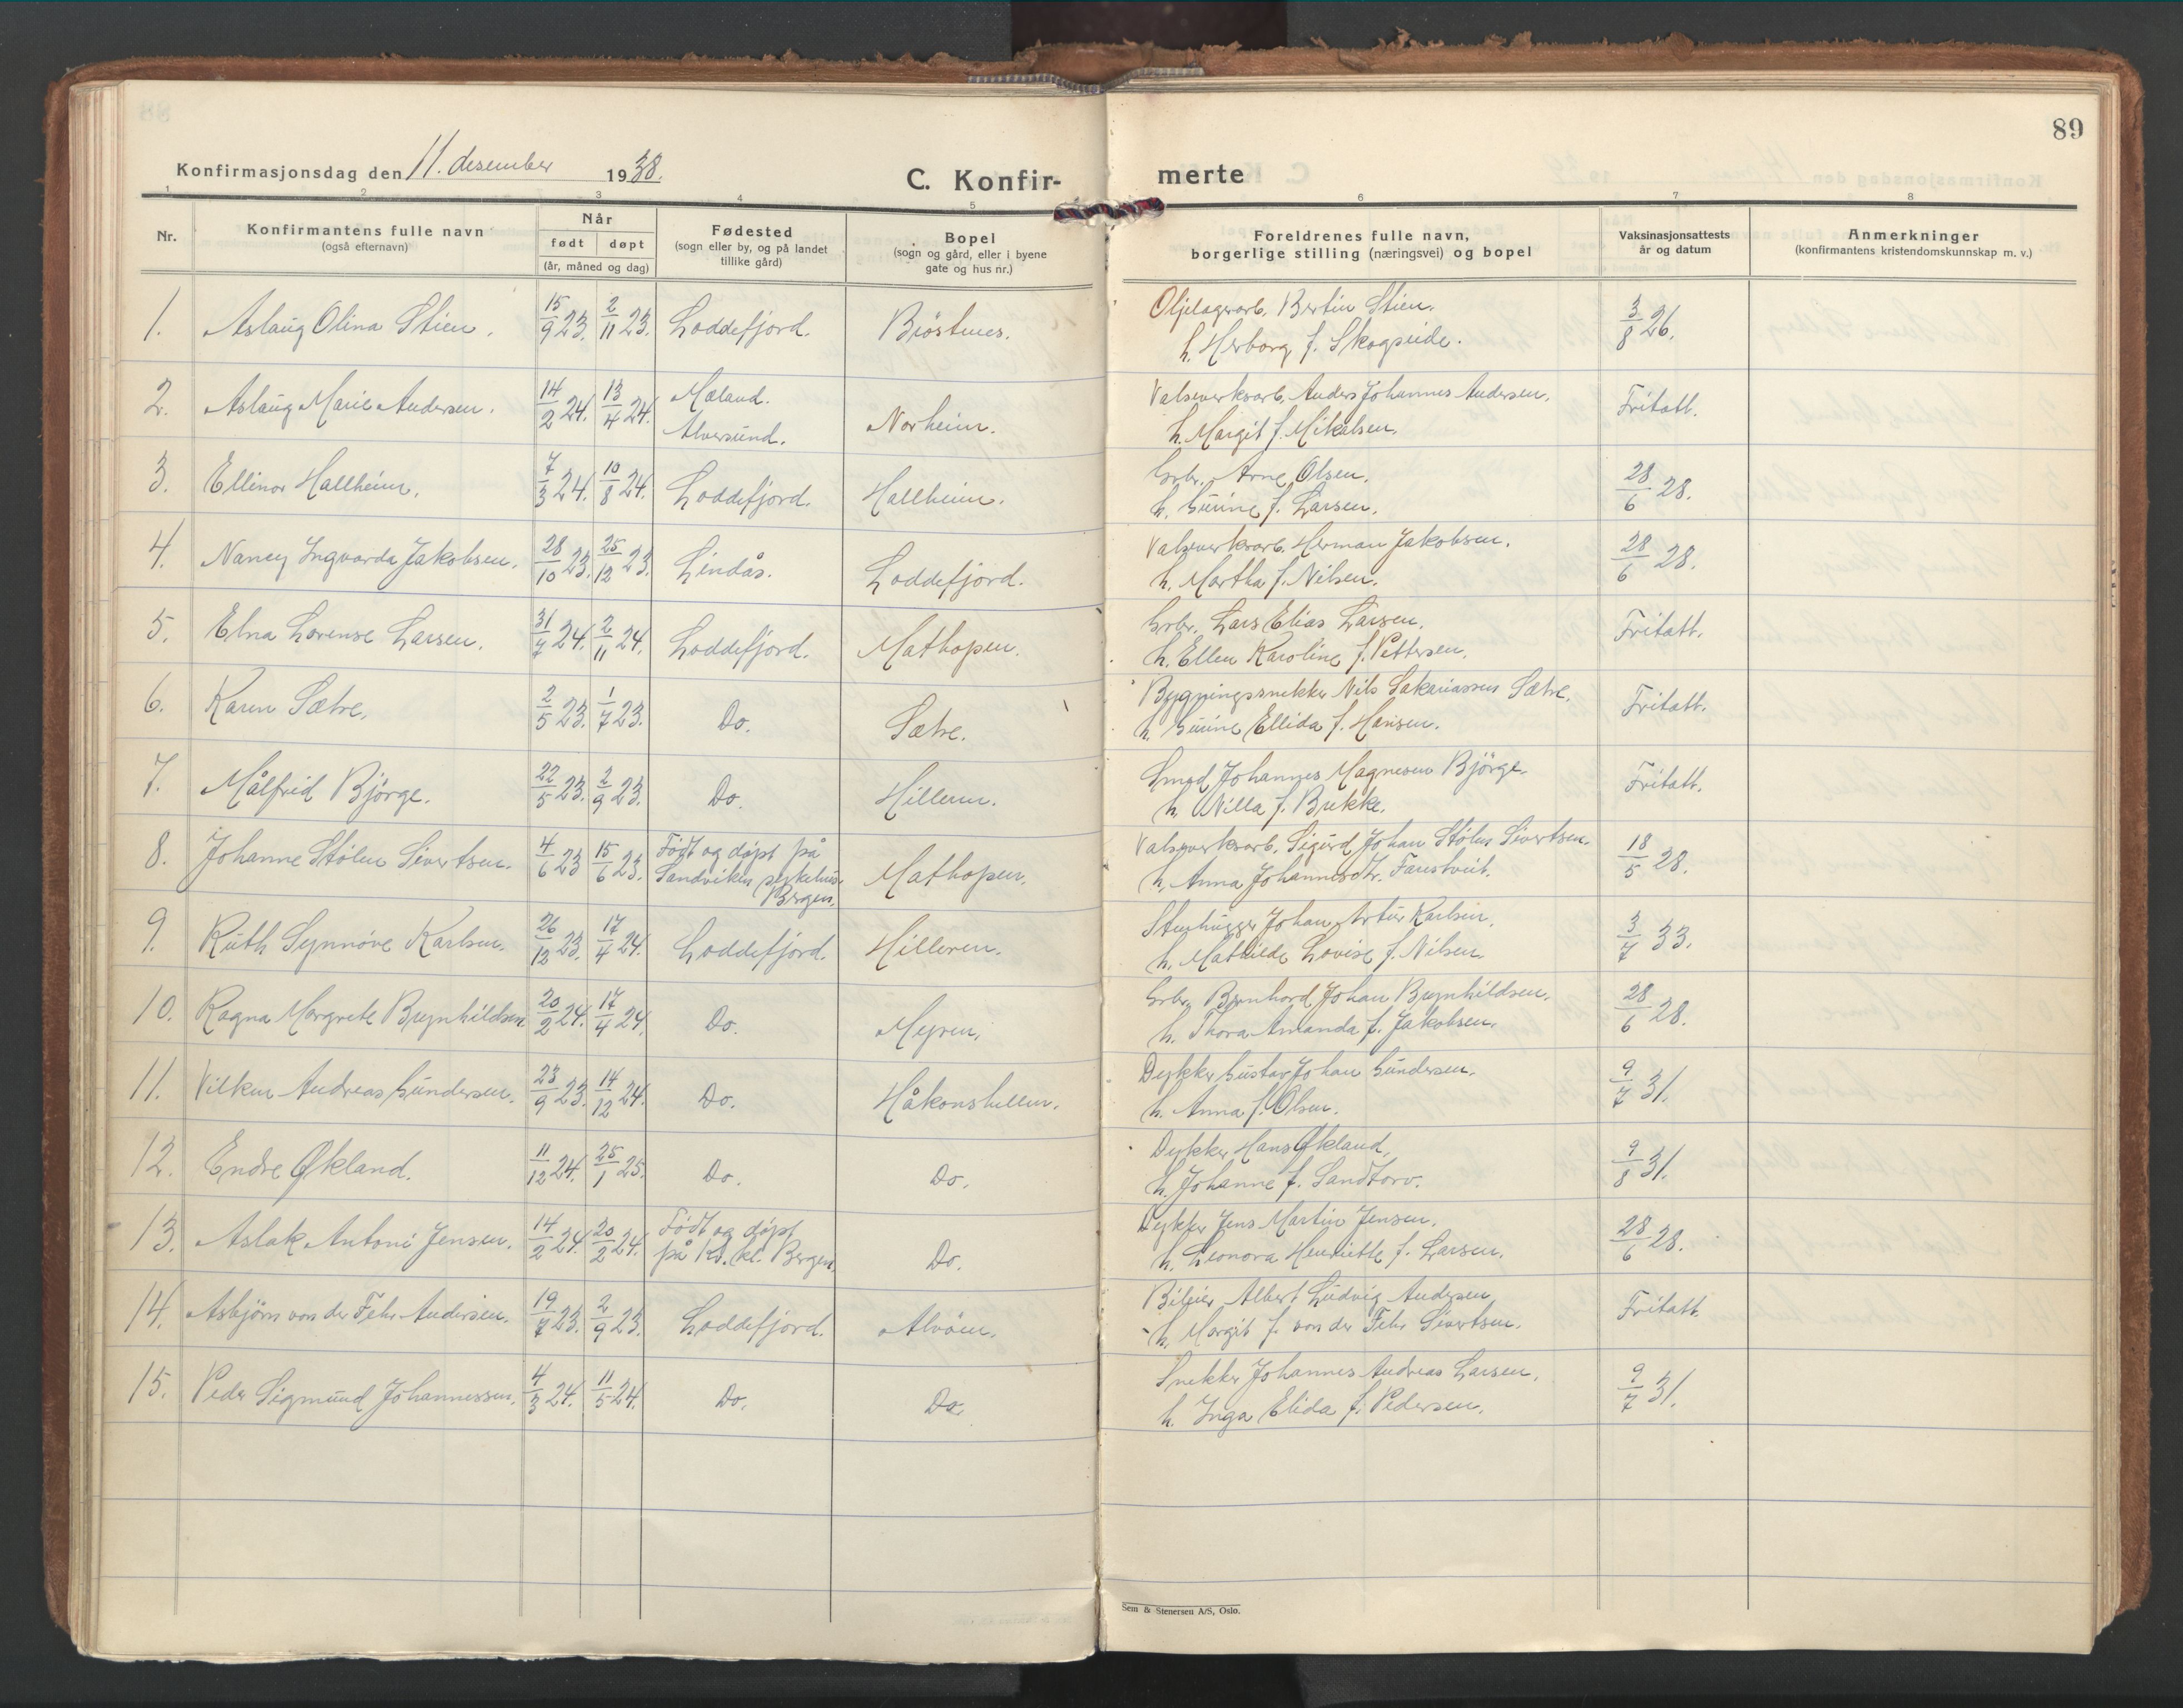 89
Konfirmasjonsdag den 11. desember 1938.
C. Konfir-
merte
1 2 3 4 5 6 7 8
Nr.
Konfirmantens fulle navn
(også efternavn)
Når
født døpt
(år, måned og dag)
Fødested
(sogn eller by, og på landet
tillike gård)
Bopel
(sogn og gård, eller i byene
gate og hus nr.)
Foreldrenes fulle navn,
borgerlige stilling (næringsvei) og bopel
Vaksinasjonsattests
år og datum
Anmerkninger
(konfirmantens kristendomskunnskap m. v.)
1. Aslaug Olina Stien. 15/9 23. 2/11 23. Loddefjord. Bröstenes. Oljelagerarb. Bertin Stien. 3/8 26.
h. Herborg f. Skogseide.
2. Aslaug Marie Andersen. 14/2 24. 13/4 24. Mæland. Norheim. Valseverksarb. Anders Johannes Andersen. Fritatt.
Alversund. h. Margit f. Mikalsen.
3. Ellinor Hallheim. 7/3 24. 10/8 24. Loddefjord. Hallheim. Grbr. Arne Olsen. 28/6 28.
h. Gurine f. Larsen.
4. Nancy Ingvarda Jakobsen. 28/10 23. 25/12 23. Lindås. Loddefjord. Valseverksarb. Herman Jakobsen. 28/6 28.
h. Martha f. Nilsen.
5. Elna Lorense Larsen. 31/7 24. 2/11 24. Loddefjord. Mathopen. Grbr. Lars Elias Larsen. Fritatt.
h. Ellen Karoline f. Pettersen.
6. Karen Sætre. 2/5 23. 1/7 23. Do. Sætre. Bygningssnekker Nils Sakariassen Sætre. Fritatt.
h. Gurine Ellida f. Hansen.
7. Målfrid Bjørge. 22/5 23. 2/9 23. Do. Hilleren. Smed Johannes Magnesen Bjørge. Fritatt.
h. Nilla f. Brekke.
8. Johanne Stølen Sivertsen. 4/6 23 15/6 23. Født og døpt på Mathopen. Valseverksarb. Sigurd Johan Stølen Sivertsen. 18/5 28.
Sandviken sykehus. h. Anna Johannesdtr. Fanstveit.
Bergen.
9. Ruth Synnøve Karlsen. 26/12 23. 17/4 24. Loddefjord. Hilleren. Stenhugger Johan Artur Karlsen. 3/7 33.
h. Mathilde Lovise f. Nilsen.
10. Ragna Margrete Brynhildsen 20/2 24. 17/4 24. Do. Myren. Grbr. Bernhard Johan Brynhildsen. 28/6 28.
h. Thora Amanda f. Jakobsen.
11. Vilken Andreas Gundersen. 23/9 23. 14/12 24. Do. Håkonshellen. Dykker Gustav Johan Gundersen. 9/7 31.
h. Anna f. Olsen.
12. Endre Økland. 11/12 24. 25/1 25. Do. Do. Dykker Hans Økland, 9/8 31.
h. Johanne f. Sandtorv.
13. Aslak Antoni Jensen. 14/2 24. 20/2 24. Født og døpt Do. Dykker Jens Martin Jensen. 28/6 28.
på Kv. kl. Bergen. h. Leonora Henriette f. Larsen.
14. Asbjørn von der Fehr Andersen. 19/7 23. 2/9 23. Loddefjord. Alvøen. Albert Ludvig Andersen Fritatt.
h. Margit f. von der Fehr Sivertsen.
15. Peder Sigmund Johannessen. 4/3 24. 11/5 24. Do. Do. Snekker Johannes Andreas Larsen. 9/7 31.
h. Inga Elida f. Pedersen.
Sem & Stenersen A/S, Oslo.